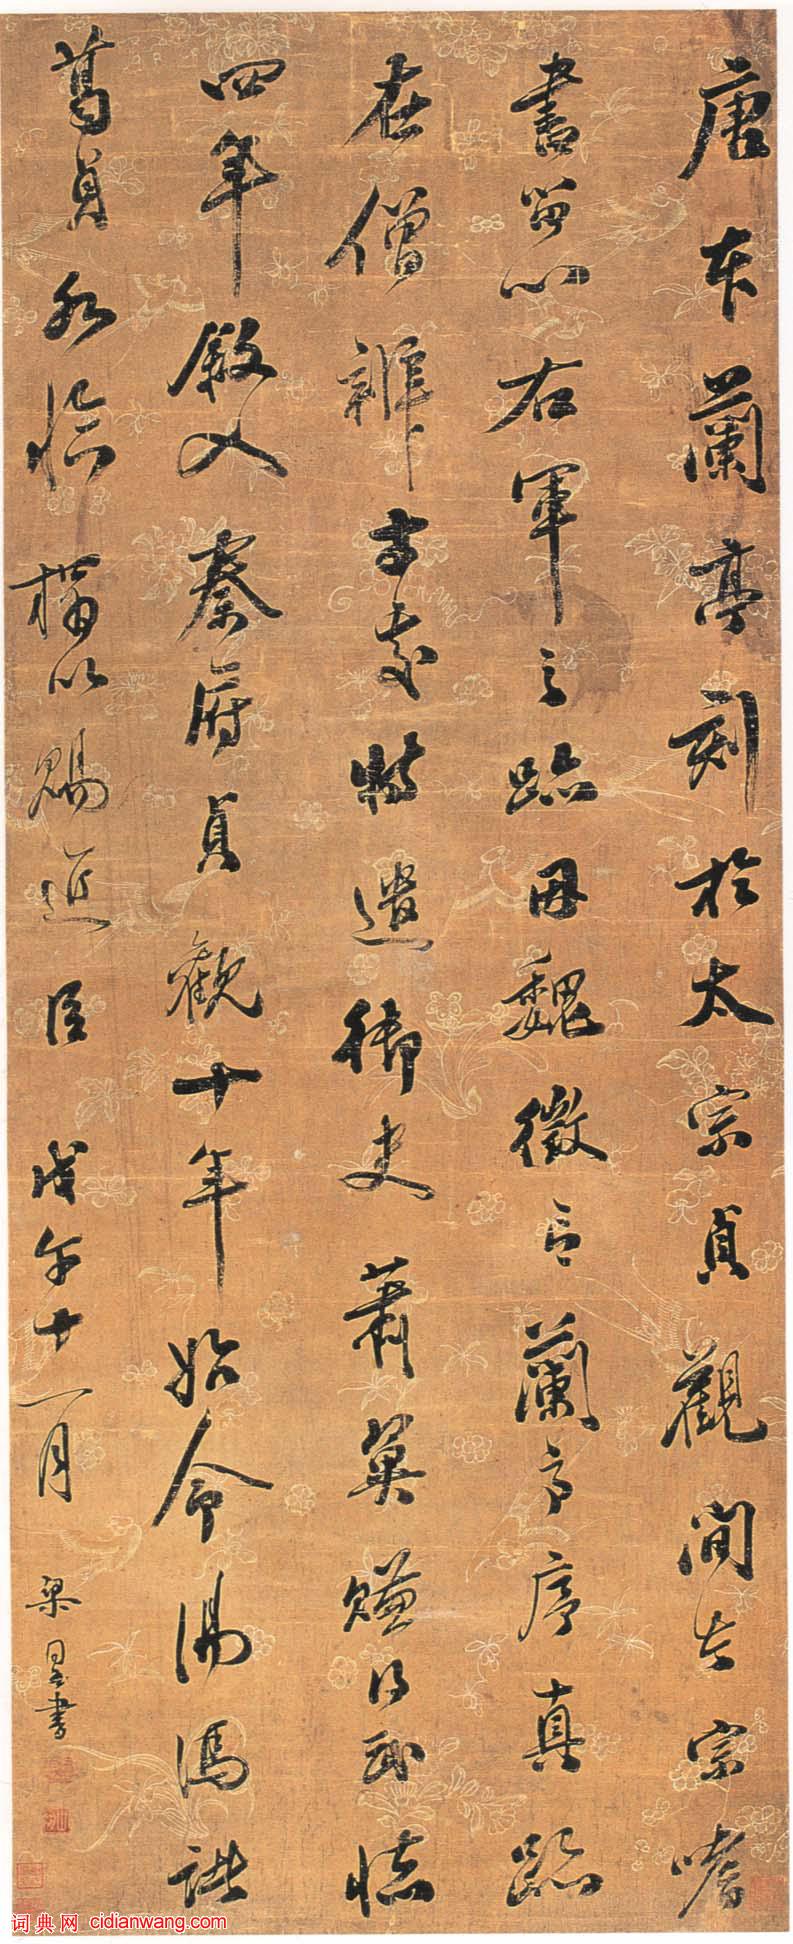 唐本蘭亭刻於太宗貞觀間太宗嗜
書留心右軍之跡因魏徵言蘭亭序真跡
在僧辨才處特遣御史蕭翼賺得武德
四年叙入秦府貞觀十年始令湯馮諸
葛貞臨搨以賜近臣 戊午十一月 梁同書
词典网 cidianwang.com